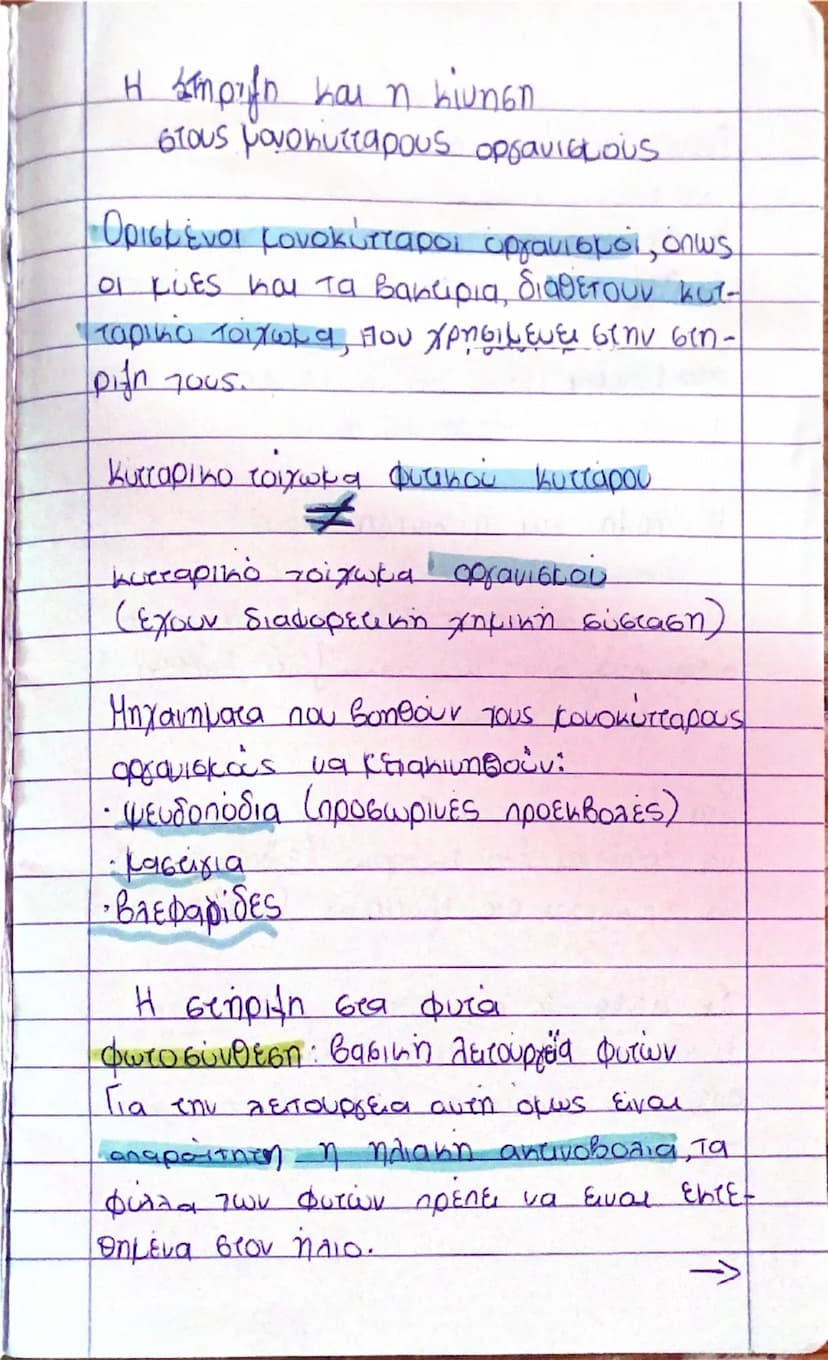 Η στήριξη και η κίνηση
στους μονοκύτταρους οργανισμούς
Ορισμένοι μονοκύτταροι οργανισμοί, όπως
οι μύες και τα βακτήρια, διαθέτουν κυτ-
ταρικό τοίχωμα, που χρησιμεύει στην στη-
ριξη τους.
Κυτταρικο τοίχωμα φυτικού κυττάρου
≠
κυτταρικό τοίχωμα οργανισμού
(έχουν διαφορετική χημική σύσταση)
Μηχανηματα που βοηθούν τους μονοκύτταρους
οργανισμούς να μετακινηθούν:
· ψευδοπόδια (προσωρινές προεκβολές)
· μαστίγια
· βλεφαρίδες
Η στήριξη στα φυτά
φωτοσύνθεση: βασική λειτουργεία φυτών
Για την λειτουργεια αυτή όμως είναι
απαραίτητη η ηλιακή ακτινοβολια, τα
φύλλα των φυτών πρέπει να ειναι εκτε-
θημένα στον ήλιο.
→